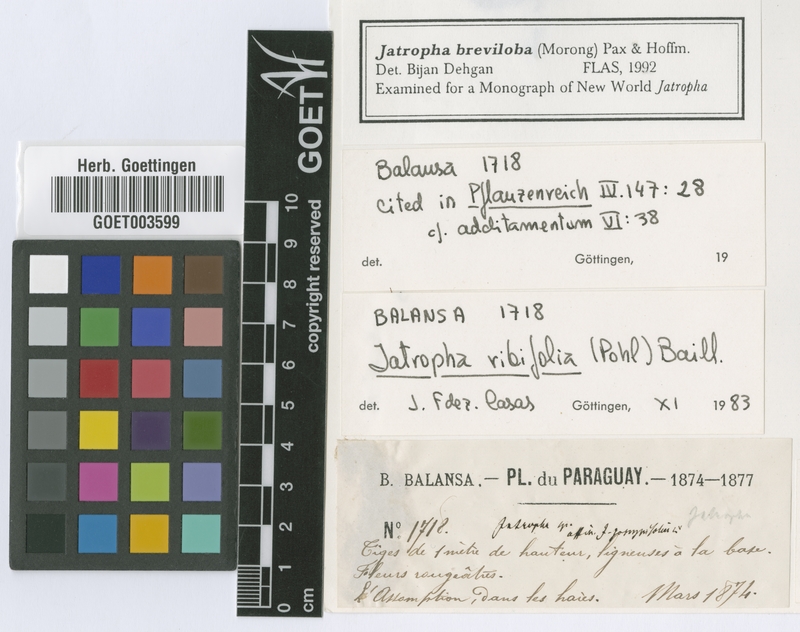 Jatropha breviloba (Morong) Pax & Hoffm.
Det. Bijan Dehgan FLAS, 1992
Examined for a Monograph of New World Jatropha
Balansa 1718
cited in Pflanzenreich IV.147: 28
cf. additamentum VI: 38
det. Göttingen, 19
BALANSA 1718
Jatropha ribifolia (Pohl) Baill.
det. J. Fdez. Casas Göttingen, XI 1983
B. BALANSA.— PL. du PARAGUAY.— 1874–1877
No. 1718. Jatropha affin. J.
Tiges de 1 mètre de hauteur, ligneuses à la base.
Fleurs rougeâtres.
L'Assomption, dans les haies. Mars 1874.
Herb. Goettingen
GOET003599
GOET
copyright reserved
10
9
8
7
6
5
4
3
2
1
0
cm